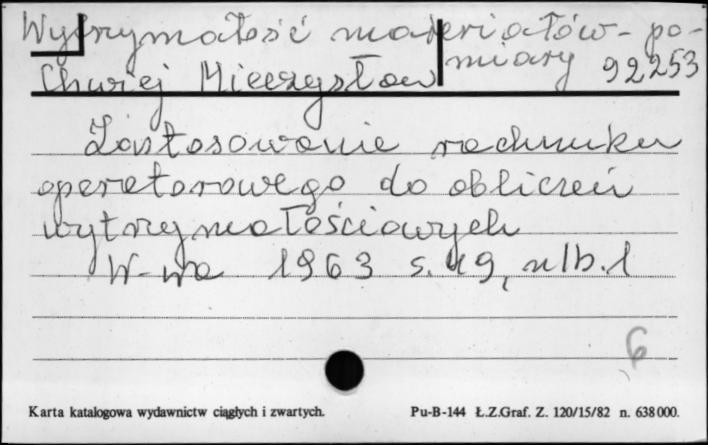 Wytrzymałość materiałów - po-
miary 92253
Chwiej Mieczysław
Zastosowanie rachunku
operatorowego do obliczeń
wytrzymałościowych
W-wa 1963 s. 49, nlb. 1
6
Karta katalogowa wydawnictw ciągłych i zwartych. Pu-B-144 Ł.Z.Graf. Z. 120/15/82 n. 638000.